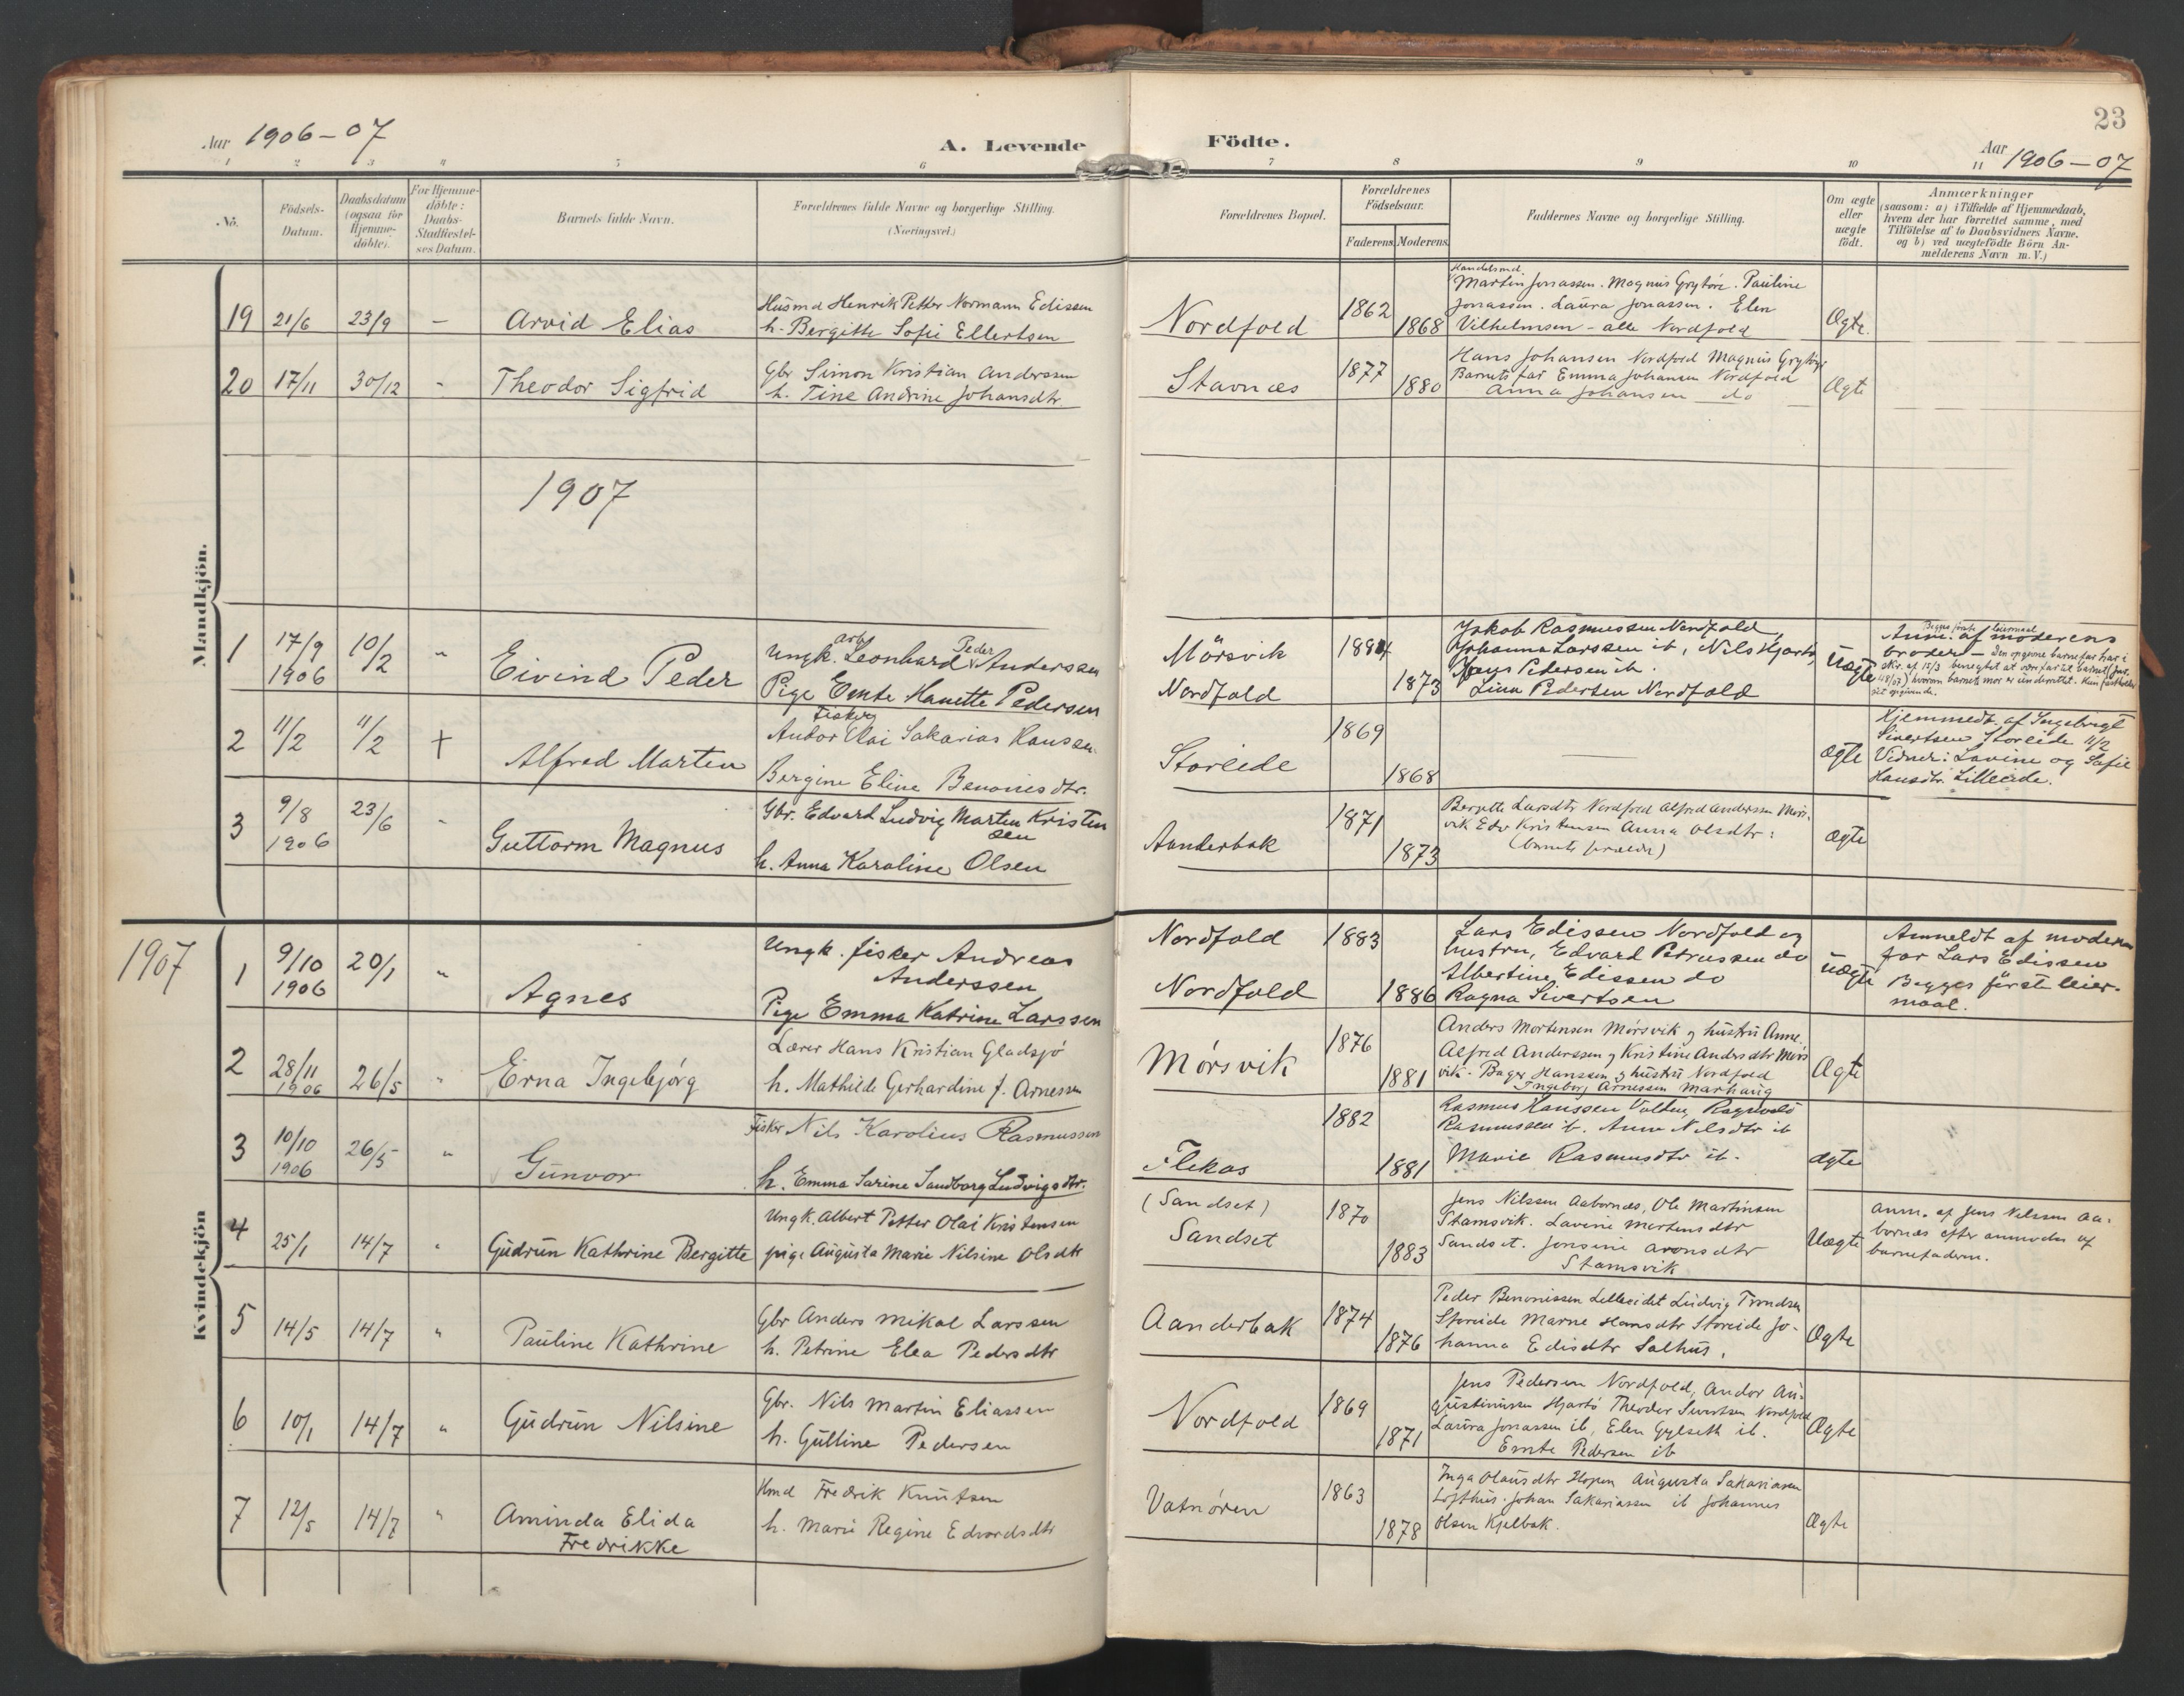 Aar 1906-07
A. Levende Födte.
Aar 1906-07
23
1 2 3 4 5 6 7 8 9 10 11
No.
Födsels-Datum.
Daabsdatum (ogsaa for Hjemme-döbte).
For Hjemme-döbte: Daabs-Stadfæstel-ses Datum.
Barnets fulde Navn.
Forældrenes fulde Navne og borgerlige Stilling.
(Næringsvei.)
Forældrenes Bopæl.
Forældrenes Födselsaar.
Faderens. Moderens.
Faddernes Navne og borgerlige Stilling.
Om ægte eller uægte födt.
Anmærkninger
(saasom: a) i Tilfælde af Hjemmedaab,
hvem der har forrettet samme, med
Tilföielse af to Daabsvidners Navne.
og b) ved uægtefödte Börn An-
melderens Navn m. V.)
Mandkjön.
19 21/6 23/9 — Arvid Elias
Husmd Henrik Petter Normann Edissen
h. Bergitte Sofie Ellertsen
Nordfold 1862 1868
Handelsmd.
Martin Jonassen. Magnus Grytöre. Pauline
Jonassen. Laura Jonassen. Elen
Vilhelmsen - alle Nordfold
Ægte.
20 17/11 30/12 - Theodor Sigfrid
Gbr Simon Kristian Anderssen
h. Tine Andrine Johansdtr
Stavnæs 1877 1880
Hans Johansen Nordfold Magnus Grytöre
Barnets far Emma Johansen Nordfold
Anna Johansen do
Ægte
1907
1 17/9 1906 10/2 " Eivind Peder
arb. Peder
Ungk. Leonhard Anderssen
Pige Emte Hanette Pedersen
Mörsvik
Nordfold
1884 1873
Jakob Rasmussen Nordfold
Johanna Larssen ib, Nils Hjartö,
Jens Pedersen ib.
Lina Pedersen Nordfold
Uægte
Begges förste leiermaal
Anm. af moderens
broder - Den opgivne barnefar har i
skr. af 15/3 benegtet at være far til barnet
hvorom barnets mor er underrettet. Hun fastholder
sit opgivende.
2 11/2 11/2 +
Alfred Marten
Fisker
Andor Olai Sakarias Hanssen
Bergine Eline Benonisdtr.
Storeide 1869 1868
—
ægte
Hjemmedt. af Ingebrigt
Sivertsen Storeide 11/2
Vidner: Lovine og Sofie
Hansdtr. Lilleeide.
3 9/8 1906 23/6 - Guttorm Magnus
Gbr. Edvard Ludvig Marten Kristen
sen
h. Anna Karoline Olsen
Aanderbak 1871 1873
Bergitte Larsdtr Nordfold Alfred Anderssen Mörs-
vik Edv Kristensen Anna Olsdtr:
(barnets forældre)
ægte
Kvindekjön
1907
1 9/10 1906 20/1 " Agnes
Ungk. fisker Andreas
Anderssen
Pige Emma Katrine Larssen
Nordfold 1883
Nordfold 1886
Lars Edissen Nordfold og
hustru, Edvard Petrussen do
Albertine Edissen do
Ragna Sivertsen
uægte
Anmeldt af moderens
far Lars Edissen
Begges første leier-
maal.
2 28/11 1906 26/5 " Erna Ingebjörg
Lærer Hans Kristian Gladsjö
h. Mathilde Gerhardine f. Arnessen
Mörsvik 1876 1881
Anders Mortensen Mörsvik og hustru Anne.
Alfred Anderssen og Kristine Andersdtr Mörs
vik. Bager Hanssen og hustru Nordfold
Ingeborg Arnessen Markaug
Ægte
3 10/10 1906 26/5 " Gunvor
Fisker Nils Karolius Rasmussen
h. Emma Sarine Sandborg Ludvigsdtr.
Flekas 1882 1881
Rasmus Hanssen Valten, Ragnvald
Rasmussen ib. Anne Nilsdtr ib
Marie Rasmusdtr ib.
ægte
4 25/1 14/7 " Gudrun Kathrine Bergitte
Ungk. Albert Petter Olai Kristensen
pige Augusta Marie Nilsine Olsdtr
(Sandset)
Sandset
1870 1883
Jens Nilssen Aabornes, Ole Martinsen
Stamsvik. Lavine Mortensdtr
Sandset. Jonsine Aronsdtr
Stamsvik
Uægte
Anm. af Jens Nilssen Aa-
bornæs efter anmodn af
barnefaderen.
5 14/5 14/7 " Pauline Kathrine
Gbr Anders Mikal Larssen
h. Petrine Elea Pedersdtr
Aanderbak 1874 1876
Peder Benonissen Lilleeidet Ludvig Trondsen
Storeide Marne Hansdtr Storeide Jo-
hanna Edisdtr Salhus.
Ægte
6 10/1 14/7 " Gudrun Nilsine
Gbr. Nils Martin Eliassen
h. Gulline Pedersen
Nordfold 1869 1871
Jens Pedersen Nordfold, Andor Au-
gustinussen Hjartö Theodor Sivertsen Nordfold
Laura Jonassen ib, Elen Gylseth ib.
Emte Pedersen ib
Ægte
7 12/5 14/7 " Aminda Elida
Fredrikke
Hmd Fredrik Knutsen
h. Marie Regine Edvardsdtr
Vatnören 1863 1878
Inga Olausdtr Hopen Augusta Sakariassen
Lofthus. Johan Sakariassen ib Johannes
Olsen Kjelbak.
Ægte